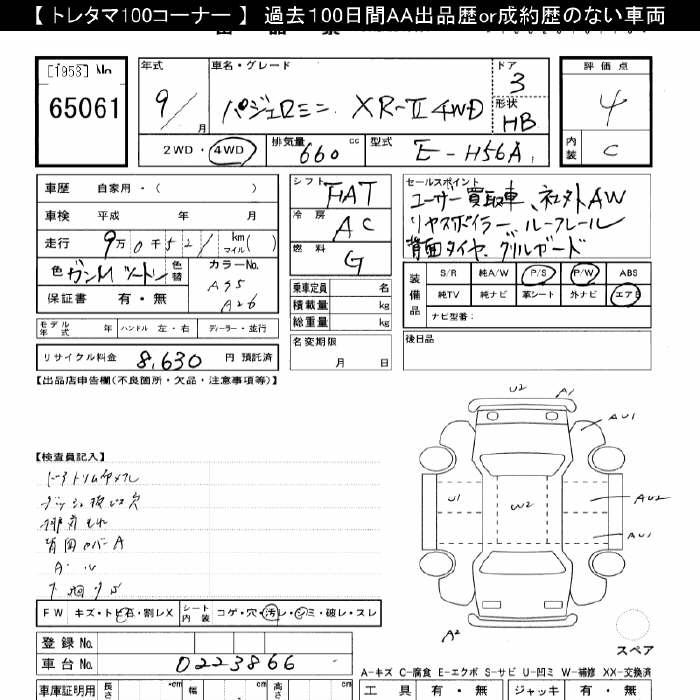 【 トレタマ100コーナー 】 過去100日間AA出品歴or成約歴のない車両
[1953] No
65061
年式 9/ 月
車名・グレード パジェロミニ XR-Ⅱ 4WD
ドア 3
形状 HB
評価点 4
内装 C
2WD・4WD
排気量 660 cc
型式 E-H56A
車歴 自家用・( )
車検 平成 年 月
走行 9万0千521 km マイル ( )
色 ガンM ツートン 色替
カラーNo. A95 A26
保証書 有・無
モデル年式 年 ハンドル 左・右 ディーラー・並行
リサイクル料金 8,630 円 預託済
シフト FAT
冷房 AC
燃料 G
乗車定員 名
積載量 kg
総重量 kg
名変期限 月 日
セールスポイント
ユーザー買取車、社外AW
リヤスポイラー、ルーフレール
背面タイヤ、グリルガード
装備品 S/R 純A/W P/S P/W ABS
純TV 純ナビ 革シート 外ナビ エアB
ナビ型番:
後日品
【出品店申告欄(不良箇所・欠品・注意事項等)】
【検査員記入】
背面カバーA
FW キズ・トビ石・割レX シート内装 コゲ・穴・汚レ・シミ・破レ・スレ
登録 No.
車台 No. 0223866
車庫証明用 長さ cm 幅 cm 高さ cm
U2 A1
AU1
U1 W2 AU2
AU1
A2
スペア
A-キズ C-腐食 E-エクボ S-サビ U-凹ミ W-補修 XX-交換済
工具 有・無 ジャッキ 有・無